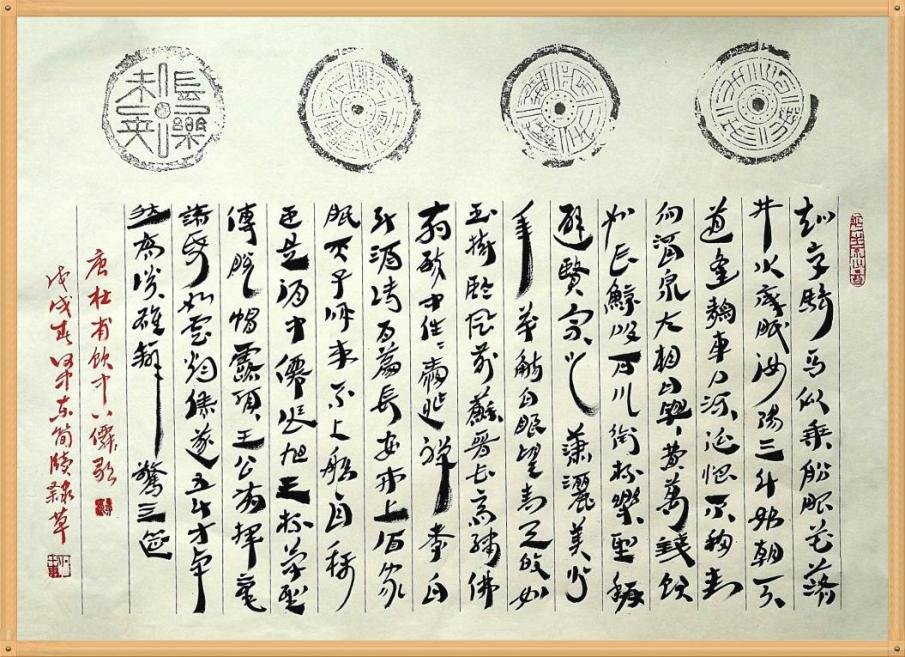 長樂未央
知章騎馬似乘船眼花落
井水底眠汝陽三斗始朝天
道逢麴車口流涎恨不移封
向酒泉左相日興費萬錢飲
如長鯨吸百川銜杯樂聖稱
避賢宗之瀟灑美少
年舉觴白眼望青天皎如
玉樹臨風前蘇晉長齋繡佛
前醉中往々愛逃禪李白
斗酒詩百篇長安市上酒家
眠天子呼來不上船自稱
臣是酒中僊張旭三杯草聖
傳脫帽露頂王公前揮毫
落紙如雲煙焦遂五斗方卓
然高談雄辯驚三筵
唐杜甫飲中八僊歌
戊戌春東簡牘隸草